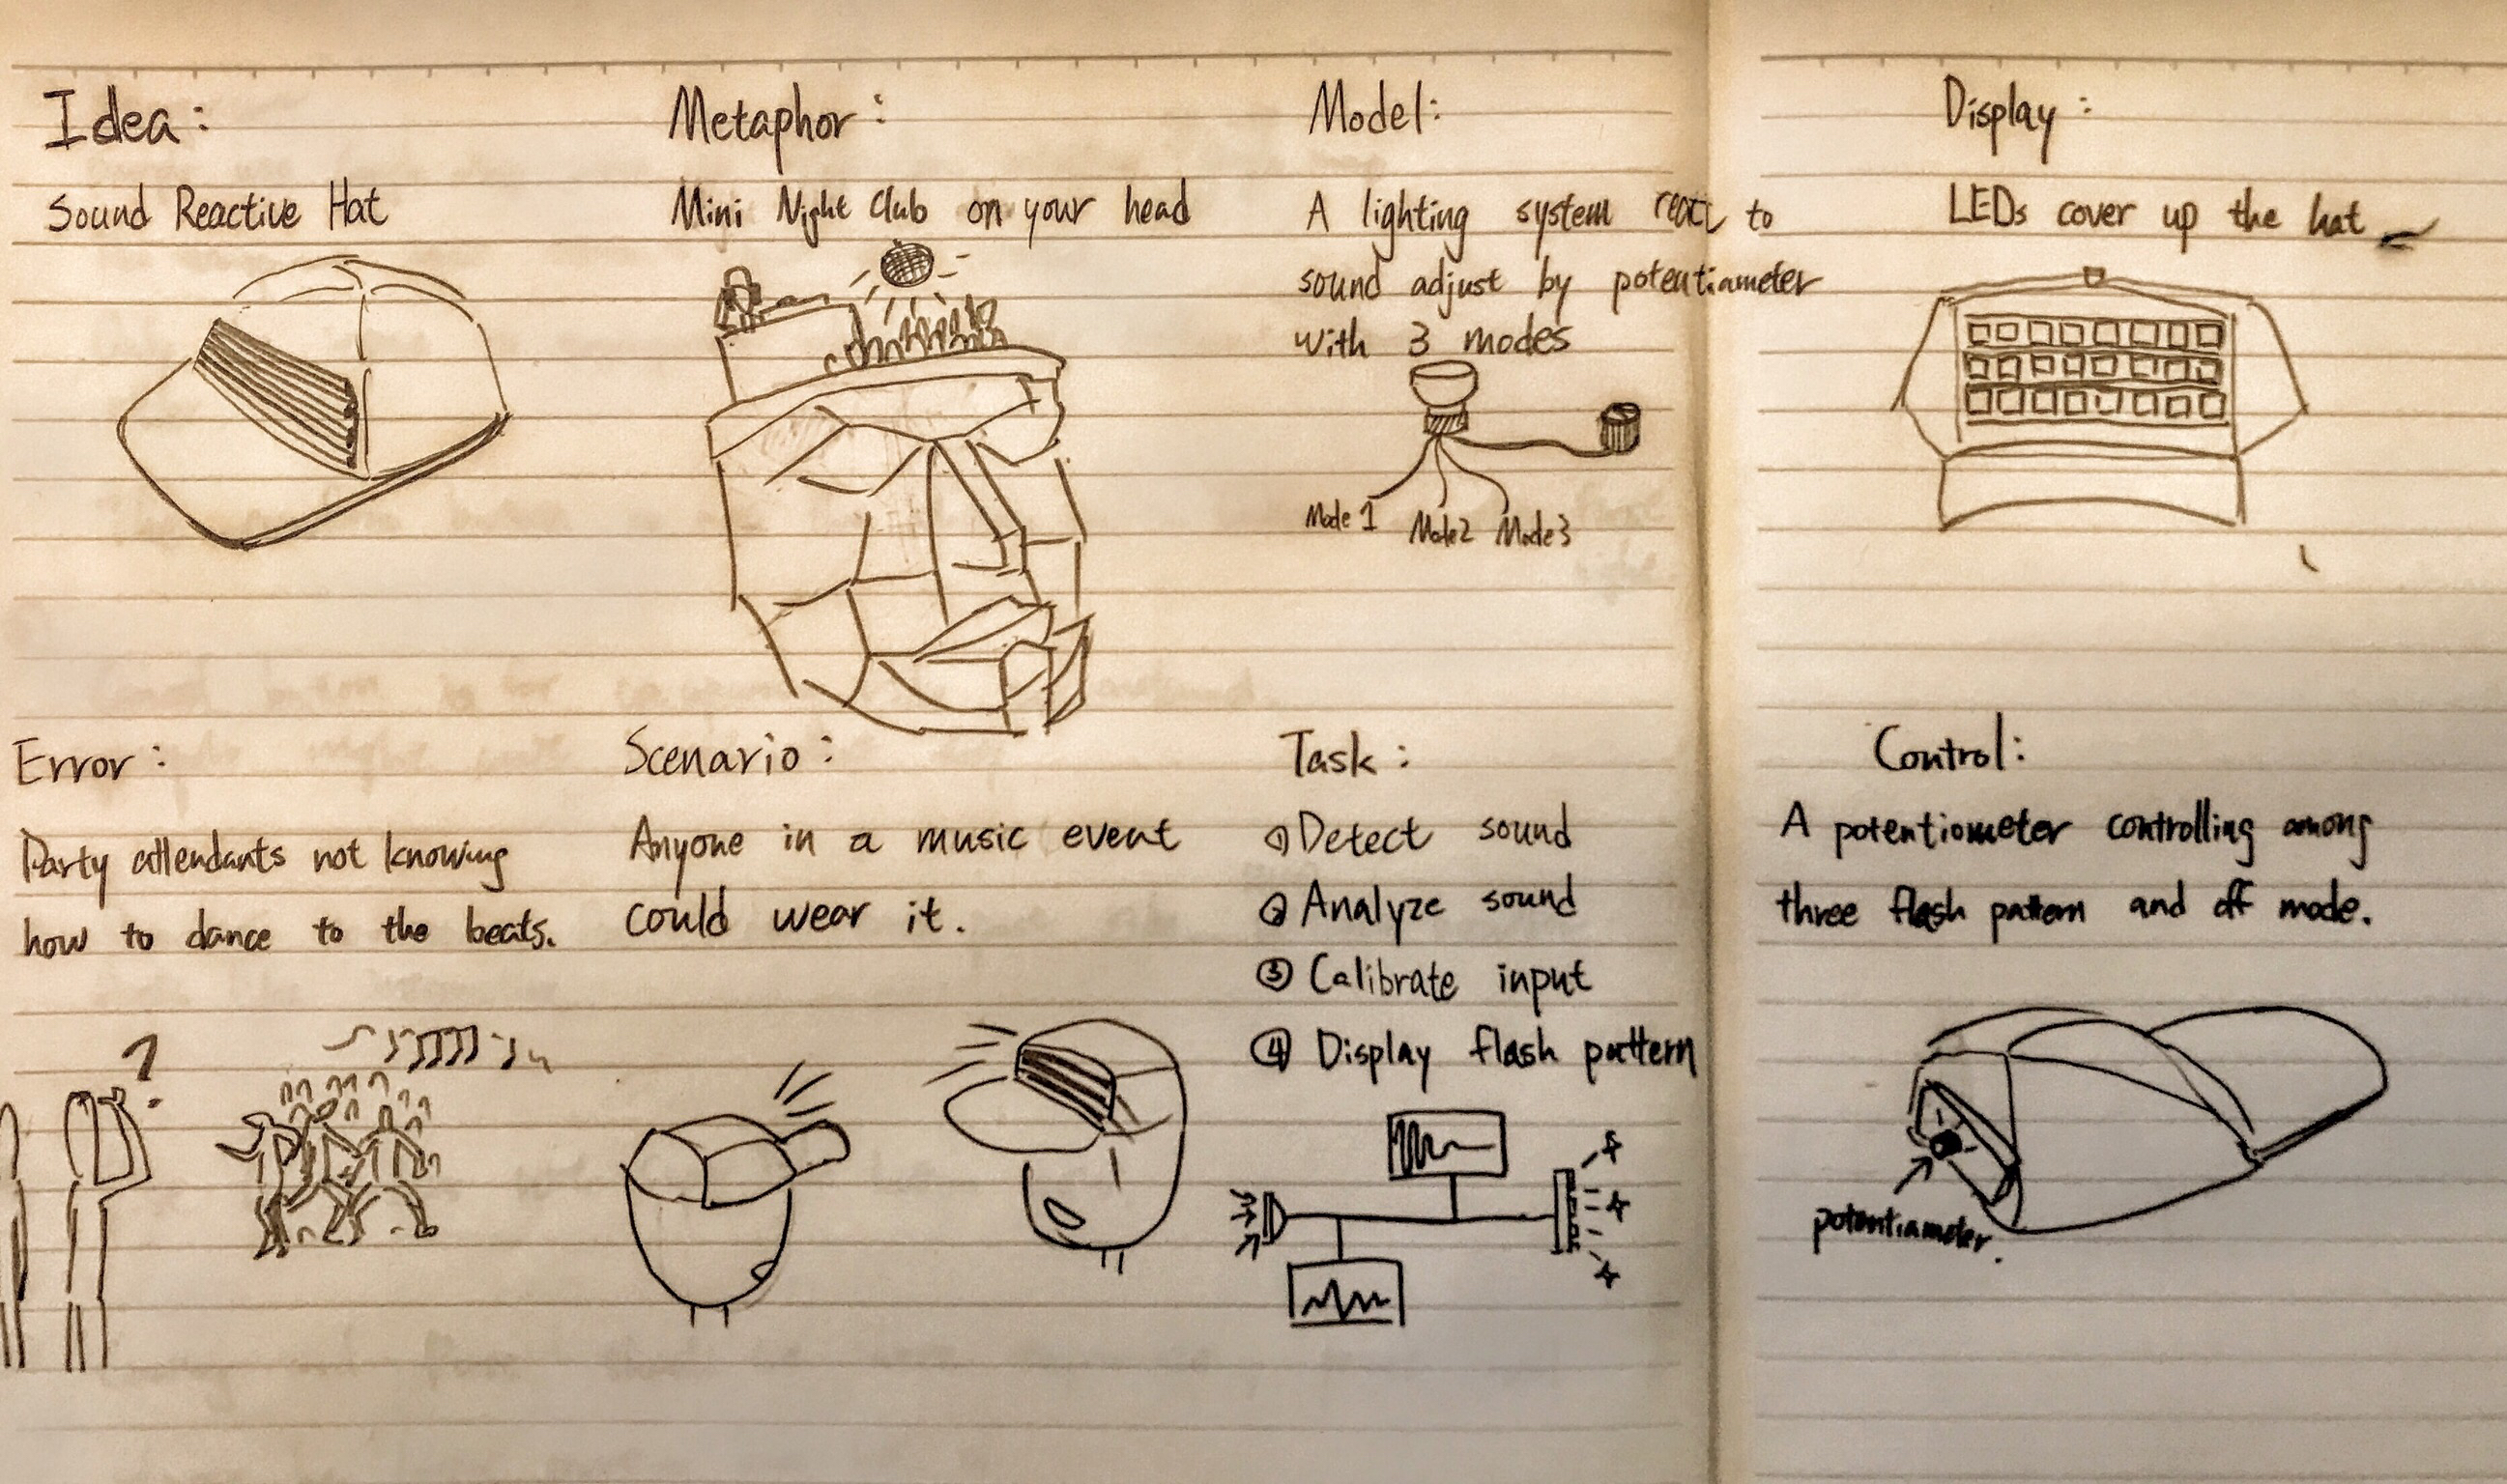 Idea:
Sound Reactive Hat
Metaphor:
Mini Night Club on your head
Model:
A lighting system react to
sound adjust by potentiameter
with 3 modes
Mode 1
Mode2
Mode3
Display:
LEDs cover up the hat
Error:
Party attendants not knowing
how to dance to the beats.
?
Scenario:
Anyone in a music event
could wear it.
Task:
① Detect sound
② Analyze sound
③ Calibrate input
④ Display flash pattern
Control:
A potentiometer controlling among
three flash pattern and off mode.
potentiameter.